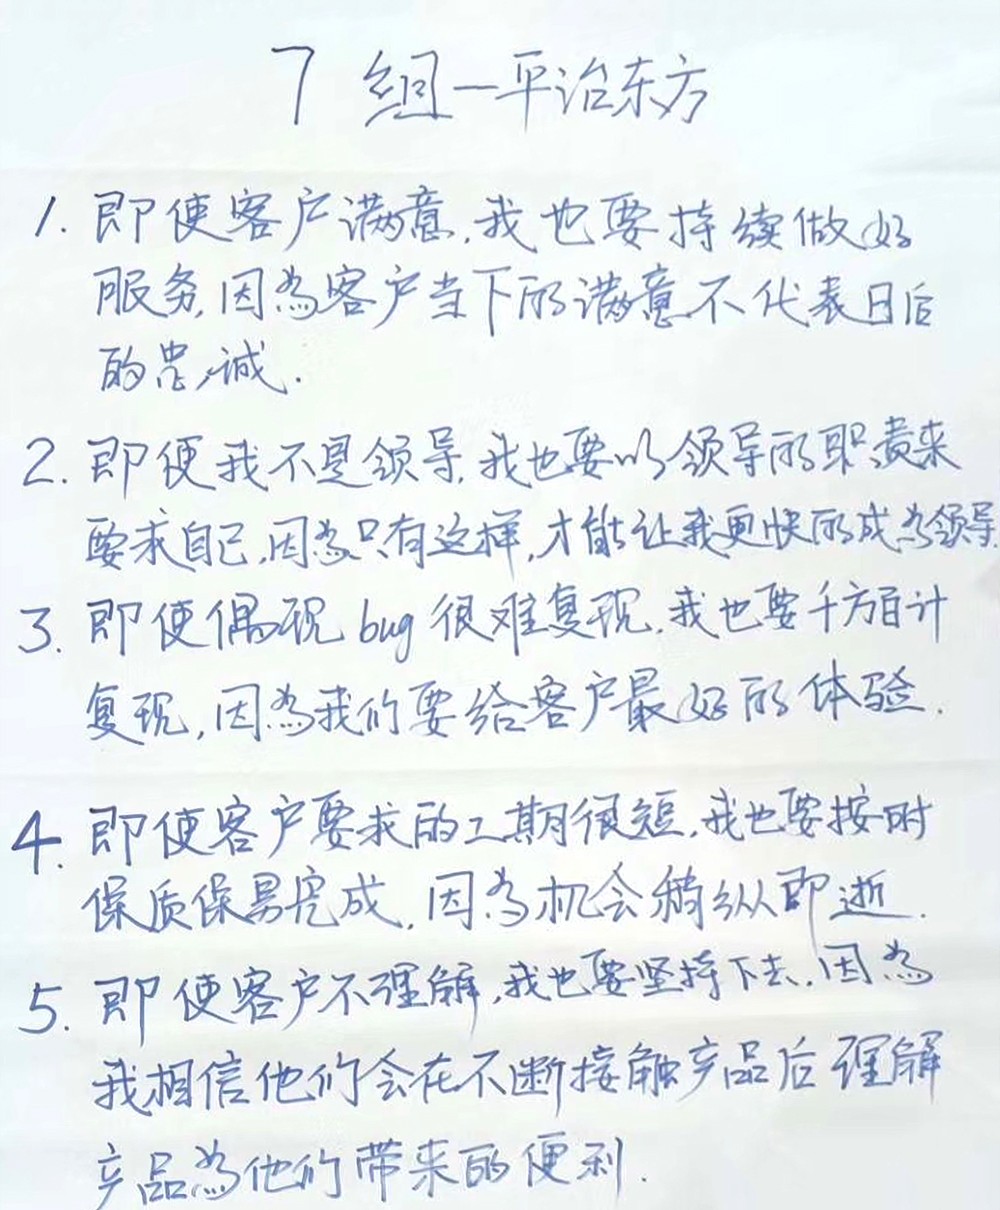 7 组一平治东方
1. 即使客户满意,我也要持续做好
服务,因为客户当下的满意不代表日后
的忠诚.
2. 即便我不是领导,我也要以领导的职责来
要求自己,因为只有这样,才能让我更快的成为领导.
3. 即使偶现bug很难复现,我也要千方百计
复现,因为我们要给客户最好的体验.
4. 即使客户要求的工期很短,我也要按时
保质保量完成,因为机会稍纵即逝.
5. 即使客户不理解,我也要坚持下去,因为
我相信他们会在不断接触产品后理解
产品为他们带来的便利.